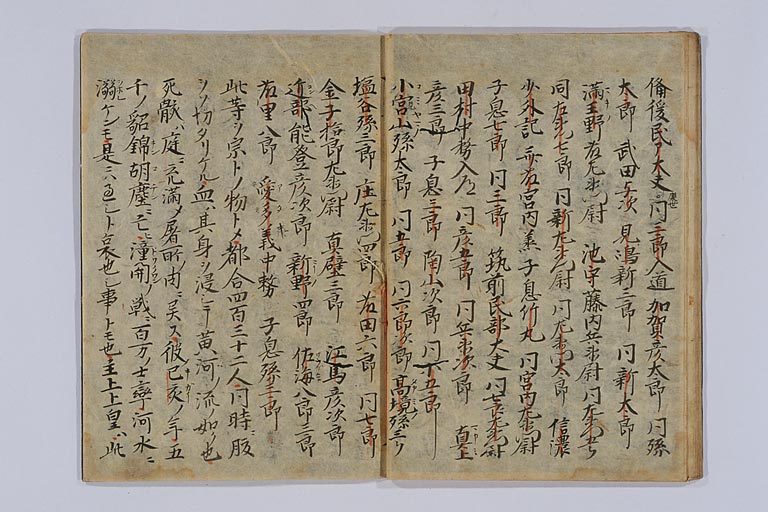 備後民ア大丈 同三郎入道 加賀彦太郎 同孫
太郎 武田与次 見嶋新三郎 同新太郎
満王野右九郎尉 池守藤内兵衛尉 同左九郎
同右九七郎 同新左衛尉 同左九郎太郎 信濃
少外記 宮内 子息竹丸 同宮内左衛門尉
子息七郎 同三郎 筑前民部大丈 同七郎左衛門尉
田村中務入道 同彦五郎 同兵衛次郎 真上
彦三郎 子息三郎 陶山次郎 同小五郎
小宮山孫太郎 同五郎 同六郎次郎 高境孫三郎
塩谷孫三郎 庄左衛門四郎 右田六郎 同七郎
金子拾郎左衛門尉 真壁三郎 江馬彦次郎
近部能登彦次郎 新野四郎 佐海八郎三郎
右里八郎 愛多義中務 子息孫三郎
此等ヲ宗トノ物トメ都合四百三十二人同時ニ腹
ヲソ切タリケル血ハ其身ヲ浸シテ黄河ノ流ノ如ク也
死骸ハ庭ニ充満メ屠所ノ肉ニ異ス彼己亥ノ年五
千ノ貂錦胡塵ニ亡ヒ潼関ノ戦ニ百万ノ士卒河水ニ
溺ケンモ是ニハ過シト哀也シ事トモ也主上上皇ハ此